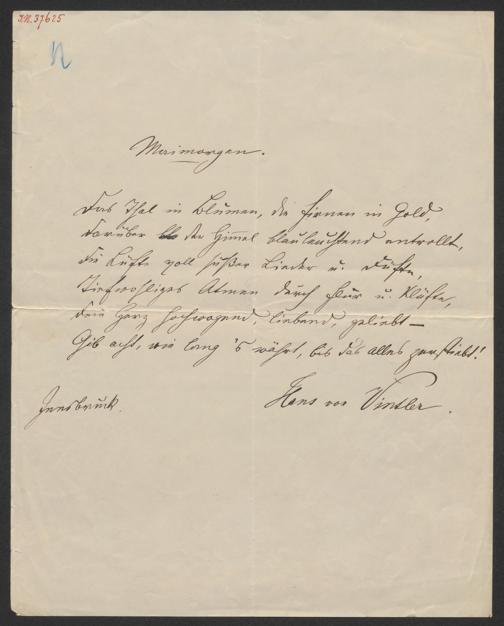 I.N. 37625
N
Maimorgen.
Das Thal in Blumen, die Firnen in Gold,
Darüber der Himmel blauleuchtend entrollt,
Die Lüfte voll süßer Lieder u. Düfte,
Tiefwohliges Atmen durch Flur u. Klüfte,
Dein Herz hochwogend, liebend, geliebt —
Gib acht, wie lang's währt, bis das alles zerstiebt!
Innsbruck.
Hans von Vintler.